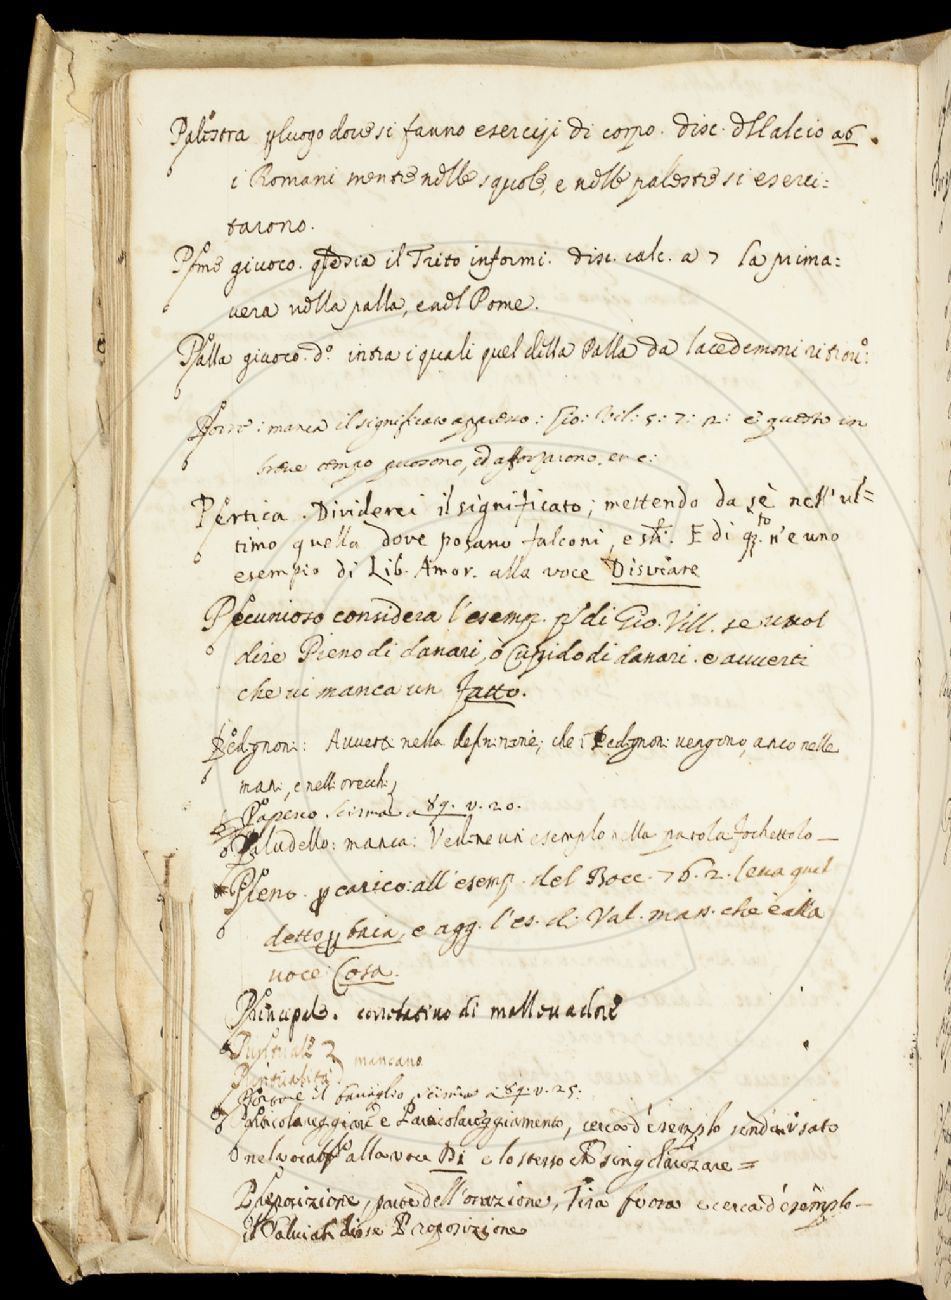 Palestra p luogo dove si fanno esercizji di corpo. disc. d'l Calcio a 6.
i Romani mentre nelle squole, e nelle palestre si eserci=
tarono.
Pome giuoco. q'le sia il Trito informi. disc. calc. a 7 la prima=
vera nella palla, e nel Pome.
Palla giuoco. d.º intra i quali quel della Palla da lacedemoni ritrov.º:
Porre: manca il significato appresso: Gio: Vil: 5: 7: 12: e questo in
breve tempo posono, ed afforzarono, etc:
Pertica. Dividerei il significato; mettendo da se nell' ul=
timo quella dove posano falconi, e sti. E di q.to n'e uno
esempio di Lib. Amor. alla voce Disviare
Pecunioso considera l'esemp. p.º di Gio. Vill. se vuol
dire Pieno di danari, o Cupido di danari. e avverti
che vi manca un fatto.
Pedignoni: Avverti nella definizione, che i Pedignoni vengono, anco nelle
mani, e nelli orecchi,
Papero. scima a 89. v. 20.
Paludello: manca: Vedine un esemplo nella parola fochettolo —
Pieno. p carico: all' esemp. del Bocc. 76. 2. leva quel
detto p baia, e agg. l'es. di Val. mas. che è alla
voce Cosa.
Principale. correlativo di mallevadore
Puntuale
Puntualità } mancano
Porre il bavaglio, scima a 89. v. 25:
Particolareggiare e Particolareggiamento, cerca d'esemplo sendo usato
nel vocab.º alla voce Di e lo stesso che singolarizare =
Preposizione, parte dell'orazione, tira fuora e cerca d'esemplo —
il Salviati disse Proposizione